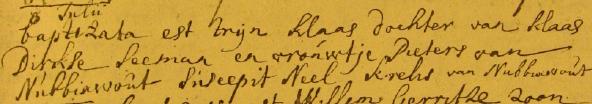 Julii
baptizata est trijn klaas dochter van klaas
Dirkse Seeman en vrouwtje Pieters van
Nubbixwout Suscepit Neel Krelis van Nubbixwout
Willem Gerritse zoon